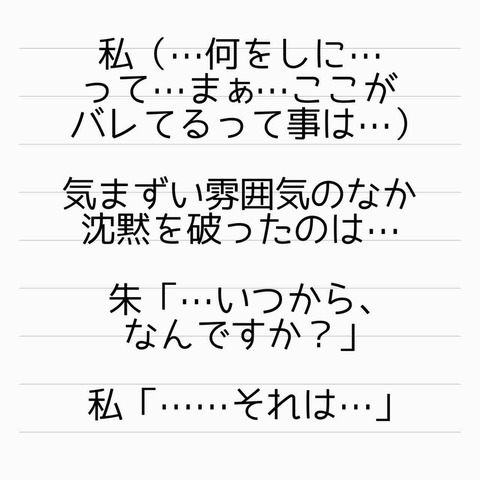 私（…何をしに…
って…まぁ…ここが
バレてるって事は…）
気まずい雰囲気のなか
沈黙を破ったのは…
朱「…いつから、
なんですか？」
私「……それは…」